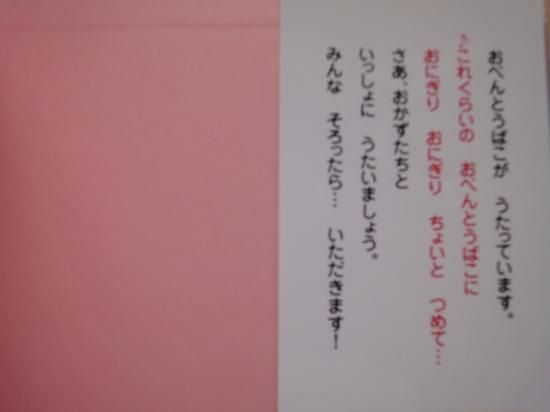 おべんとうばこが　うたっています。
♪これくらいの　おべんとうばこに
おにぎり　おにぎり　ちょいと　つめて…
さあ、おかずたちと
いっしょに　うたいましょう。
みんな　そろったら…　いただきます！